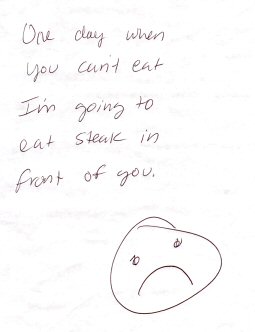 One day when
you can't eat
I'm going to
eat steak in
front of you.